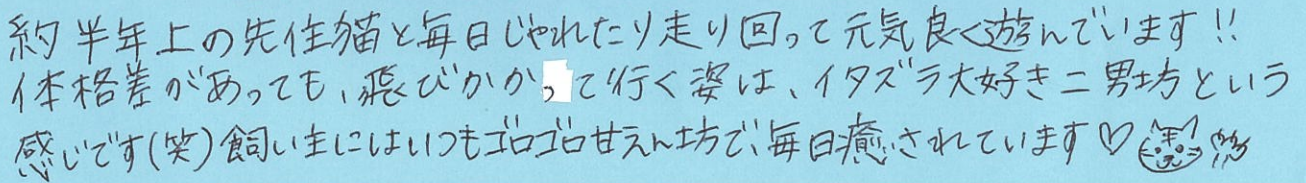 約半年上の先住猫と毎日じゃれたり走り回って元気良く遊んでいます!!
体格差があっても、飛びかかって行く姿は、イタズラ大好き二男坊という
感じです(笑)飼い主にはいつもゴロゴロ甘えん坊で、毎日癒されています♡